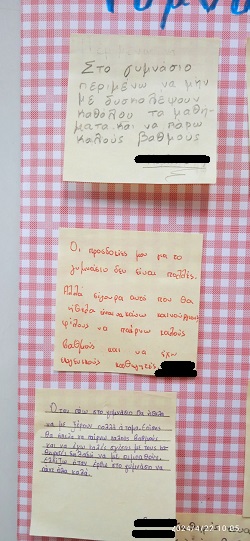 Στο γυμνάσιο
περιμένω να μην
με δυσκολέψουν
καθόλου τα μαθή-
ματα και να πάρω
καλούς βαθμούς
Οι προσδοκίες μου για το
γυμνάσιο δεν είναι πολλές.
Αλλά σίγουρα αυτό που θα
ήθελα είναι να κάνω καινούργιους
φίλους να παίρνω καλούς
βαθμούς και να έχω
καθηγητές
Όταν πάω στο γυμνάσιο θα ήθελα
να με ξέρουν πολλά άτομα. Επίσης
θα ήθελα να παίρνω καλούς βαθμούς
και να έχω καλές σχέσεις με τους κα-
θηγητές δηλαδή να με συμπαθούν.
όταν έρθω στο γυμνάσιο να
πάνε όλα καλά.
2024/4/22 10:05